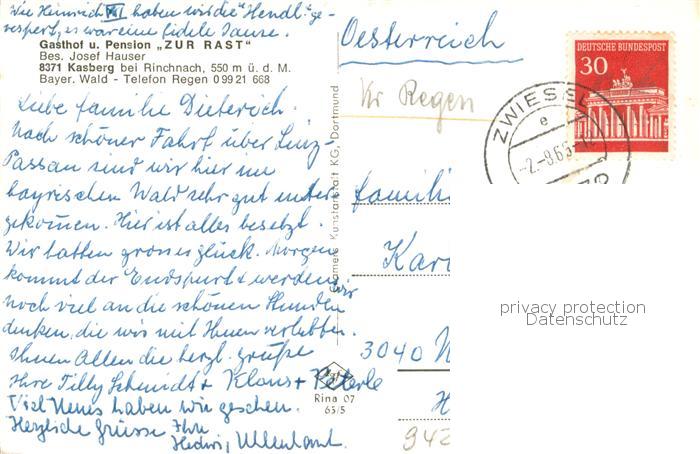 Wie Heinrich VIII haben wir die "Hendl" ge-
vespert, es war eine fidele Sause.
Gasthof u. Pension „ZUR RAST"
Bes. Josef Hauser
8371 Kasberg bei Rinchnach, 550 m ü. d. M.
Bayer. Wald - Telefon Regen 0 99 21 668
Liebe familie Dieterich.
Nach schöner Fahrt über Linz-
Passau sind wir hier im
bayrischen Wald sehr gut unter-
gekommen. Hier ist alles besetzt.
Wir hatten grosses glück. Morgen
kommt der Endspurt & werden wir
noch viel an die schönen Stunden
denken, die wir mit Ihnen verlebten.
Ihnen Allen die herzl. grüße
Ihre Tilly Schmidt + Klaus + Peterle
Viel Neues haben wir gesehen.
Herzliche Grüsse Ihre
Hedwig
Kunstanstalt KG, Dortmund
Rina 07
65/5
Oesterreich
Kr Regen
DEUTSCHE BUNDESPOST
30
ZWIESEL
e
familie
Kar
3040
942
privacy protection
Datenschutz